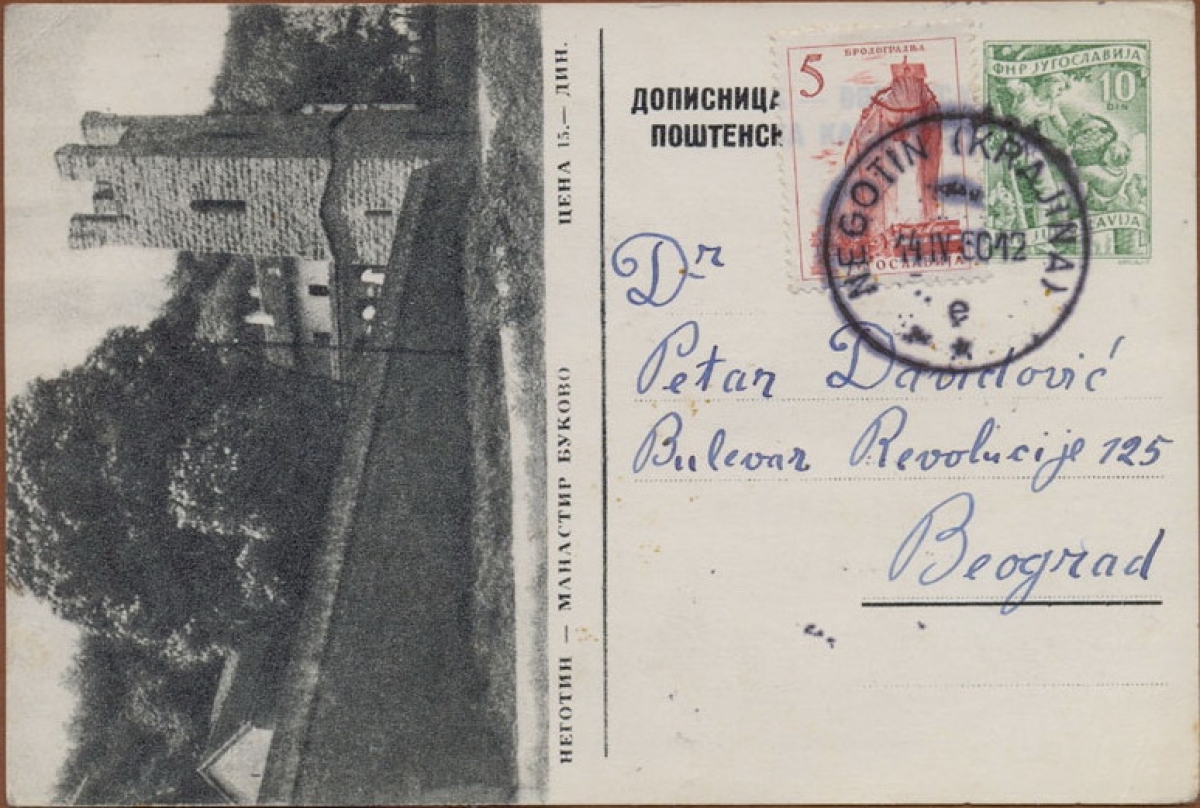 НЕГОТИН — МАНАСТИР БУКОВО ЦЕНА 15.— ДИН.
ДОПИСНИЦА
ПОШТЕНСК
5
БРОДОГРАДЊА
ФНР ЈУГОСЛАВИЈА
10
DIN
NEGOTIN (KRAJINA)
14.IV.60 12
e
Dr
Petar Davidović
Bulevar Revolucije 125
Beograd